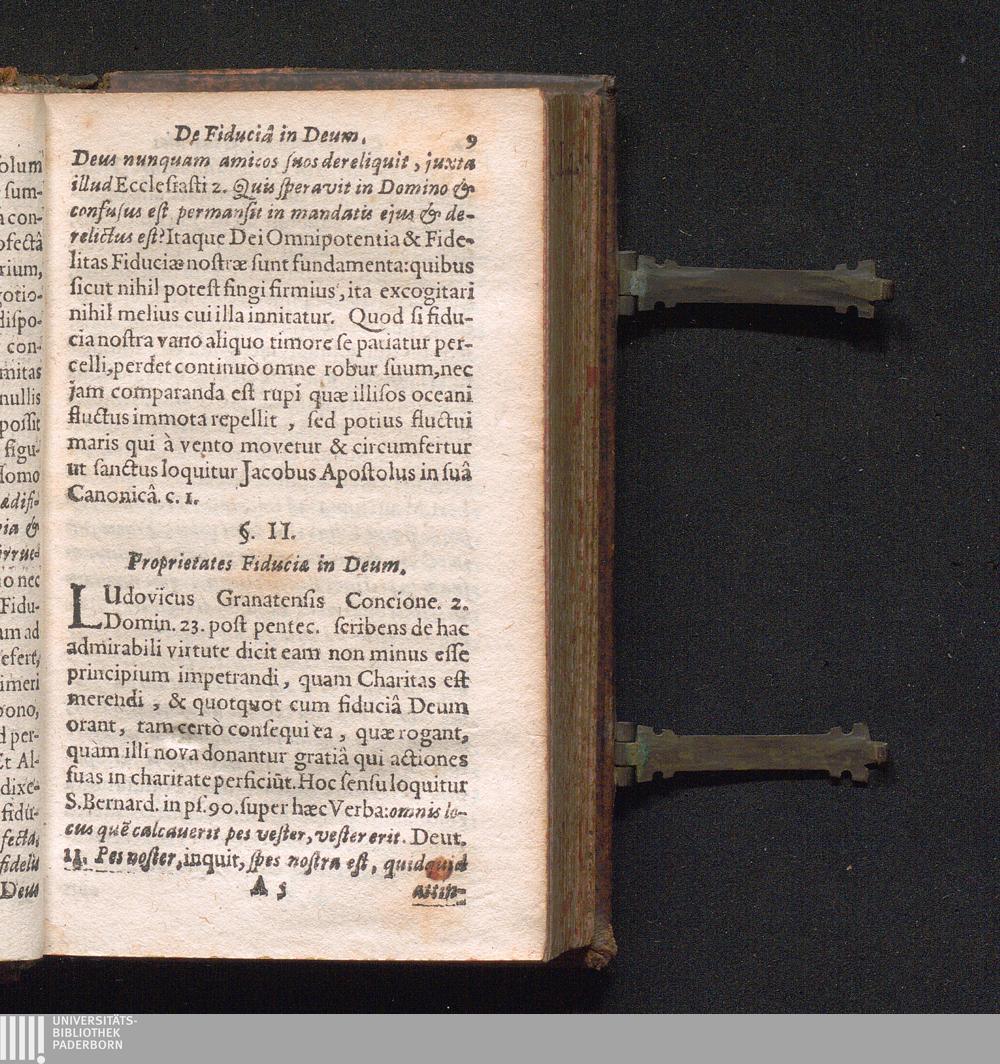 De Fiduciâ in Deum. 9
Deus nunquam amicos ſuos dereliquit, juxta
illud Eccleſiaſti 2. Quis ſperavit in Domino &
confuſus eſt permanſit in mandatis ejus & de-
relictus eſt? Itaque Dei Omnipotentia & Fide-
litas Fiduciæ noſtræ ſunt fundamenta: quibus
ſicut nihil poteſt fingi firmius, ita excogitari
nihil melius cui illa innitatur. Quod ſi fidu-
cia noſtra vano aliquo timore ſe patiatur per-
celli, perdet continuò omne robur ſuum, nec
jam comparanda eſt rupi quæ illiſos oceani
fluctus immota repellit, ſed potius fluctui
maris qui à vento movetur & circumfertur
ut ſanctus loquitur Jacobus Apoſtolus in ſuâ
Canonicâ. c. 1.
§. II.
Proprietates Fiduciæ in Deum.
LUdovicus Granatenſis Concione. 2.
Domin. 23. poſt pentec. ſcribens de hac
admirabili virtute dicit eam non minus eſſe
principium impetrandi, quam Charitas eſt
merendi, & quotquot cum fiduciâ Deum
orant, tam certò conſequi ea, quæ rogant,
quam illi nova donantur gratiâ qui actiones
ſuas in charitate perficiūt. Hoc ſenſu loquitur
S. Bernard. in pſ. 90. ſuper hæc Verba: omnis lo-
cus quē calcauerit pes veſter, veſter erit. Deut.
11. Pes noſter, inquit, ſpes noſtra eſt, quidquid
A 5 attin-
olum
ſum-
con-
ofectâ
rium,
otio-
diſpo-
con-
mitas
nullis
poſſit
figu-
Homo
ædifi-
&
irrue-
o nec
Fidu-
am ad
efert,
imeri
bono,
d per-
Et Al-
dixe-
fidu-
fecta,
fidelis
Deus
UNIVERSITÄTS-
BIBLIOTHEK
PADERBORN